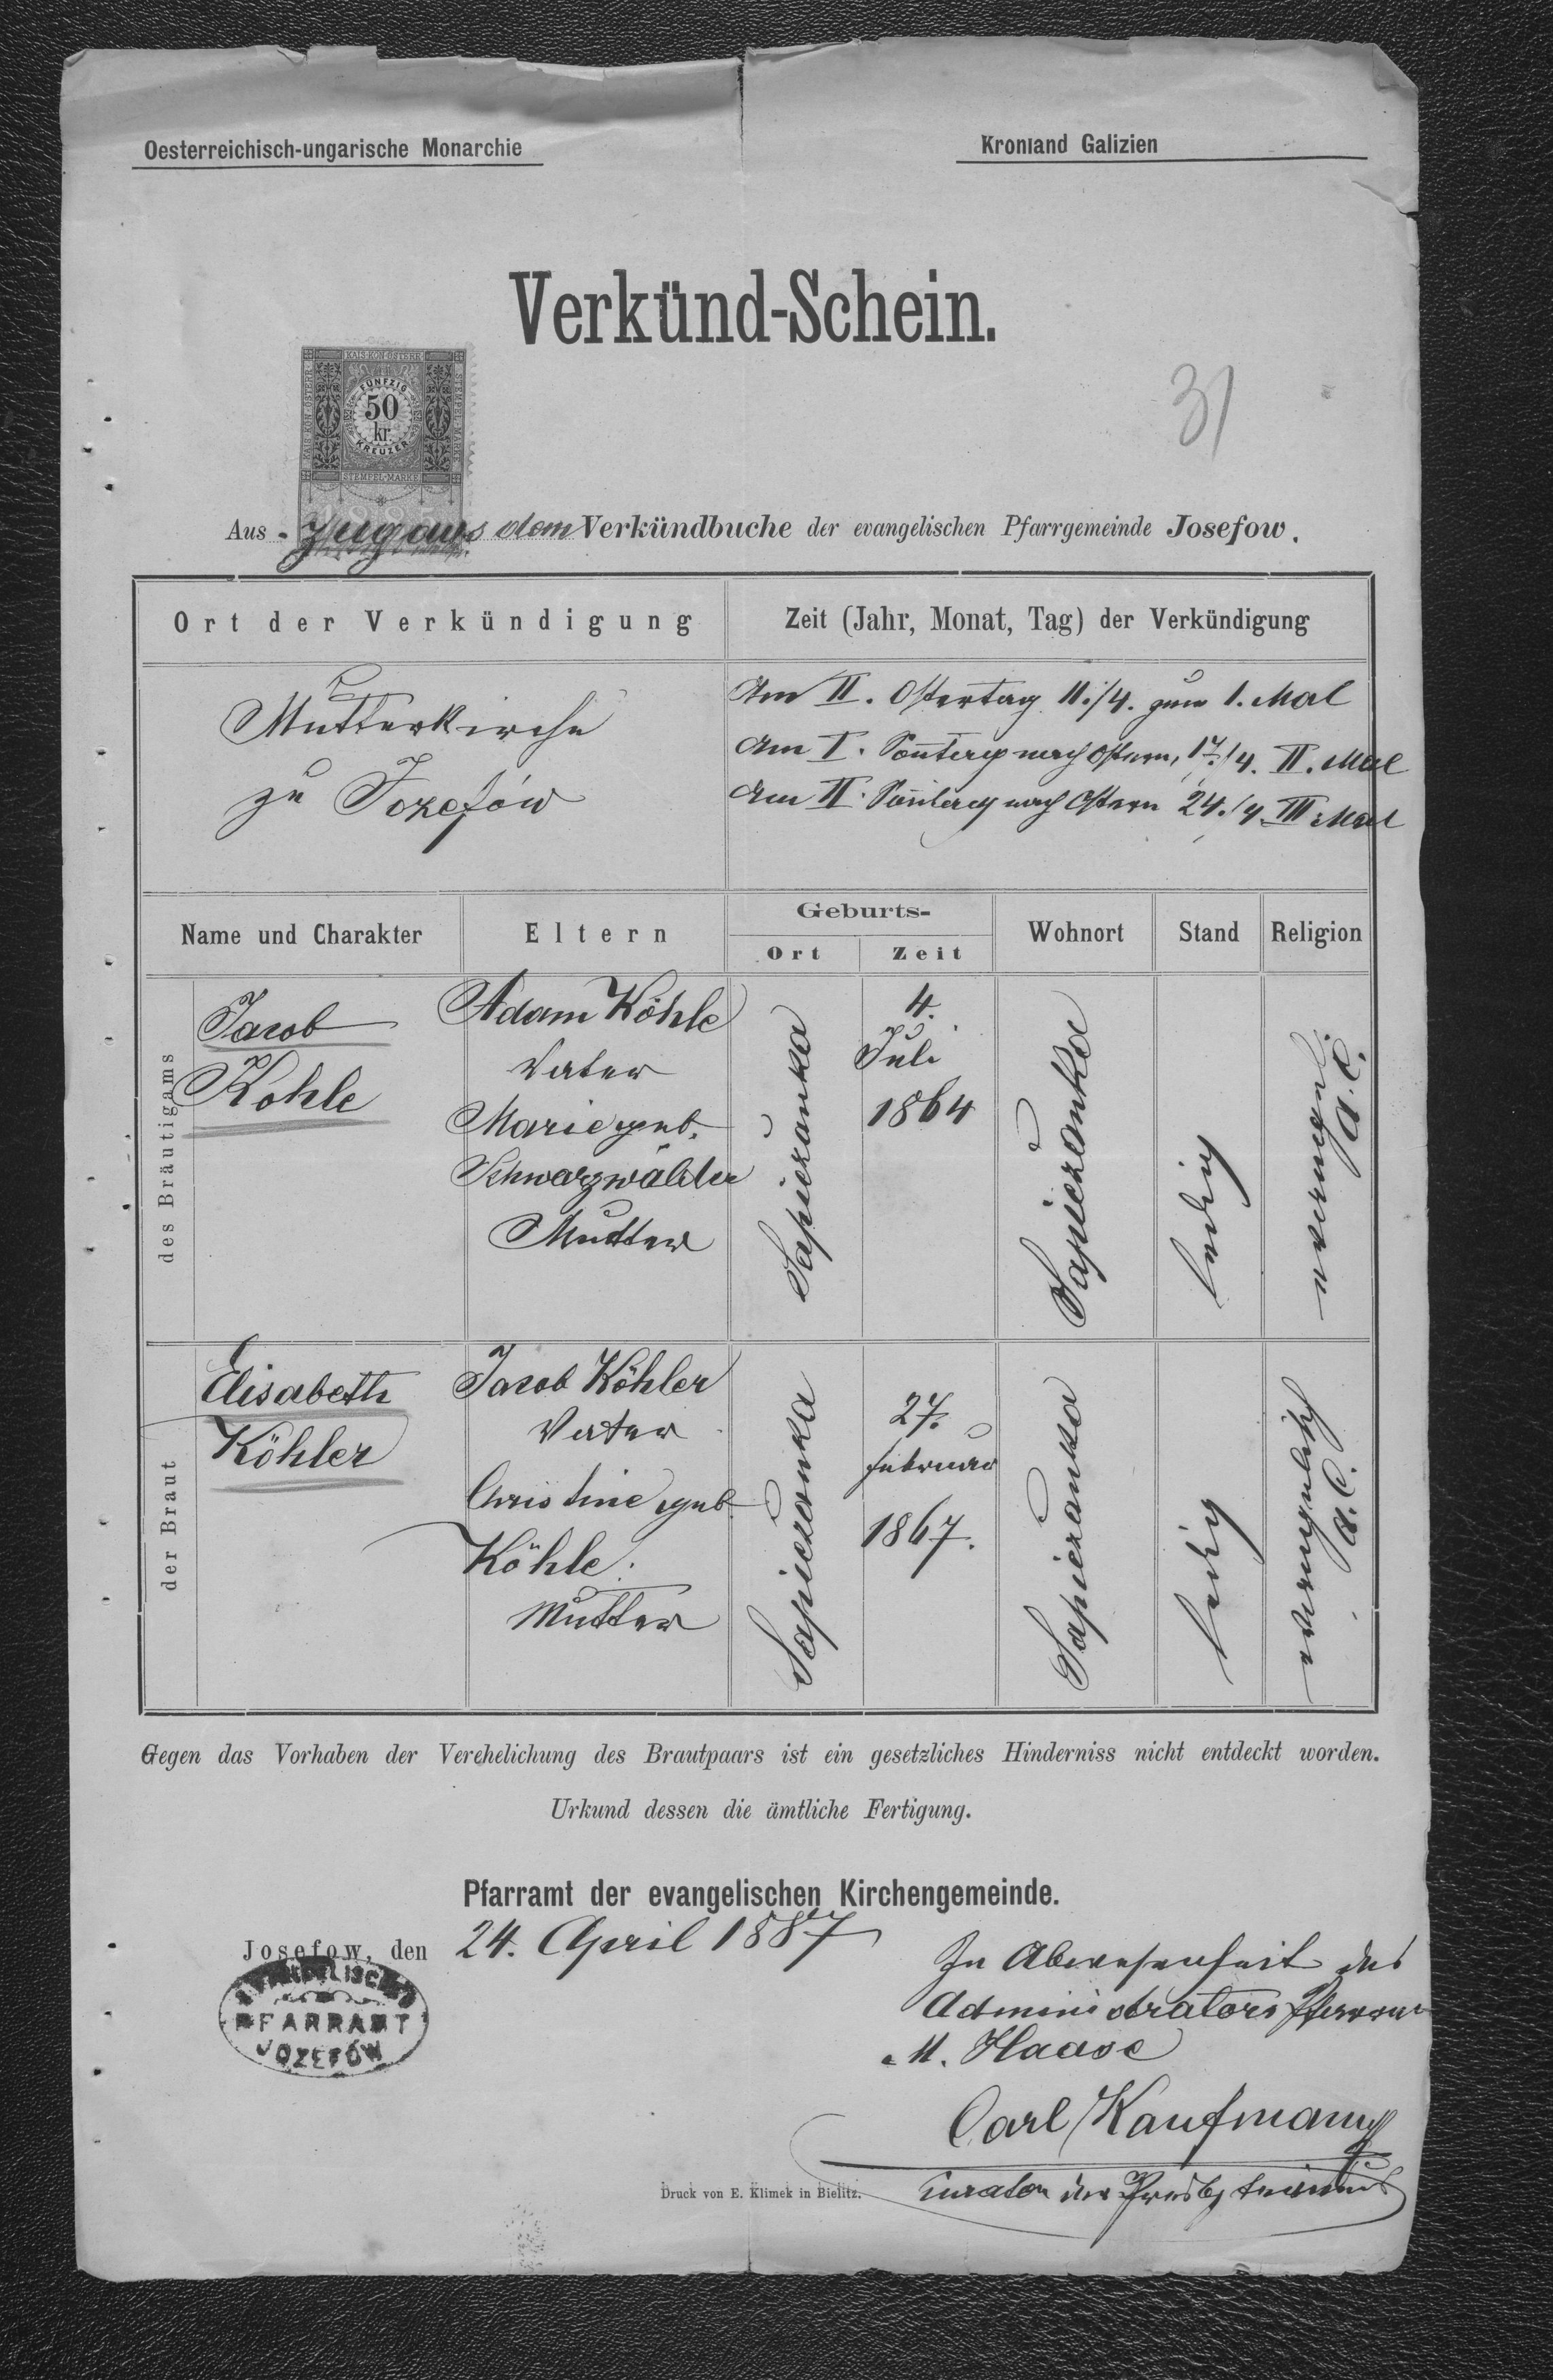 Oesterreichisch-ungarische Monarchie
Kronland Galizien
Verkünd-Schein.
KAIS·KÖN·ÖSTERR
FÜNFZIG
50
kr.
KREUZER
STEMPEL-MARKE
31
Aus-zug aus dem Verkündbuche der evangelischen Pfarrgemeinde Josefow.
Ort der Verkündigung
Zeit (Jahr, Monat, Tag) der Verkündigung
Mutterkirche
zu Jozefów
Am II. Ostertag 11./4. zum 1. Mal
Am I. Sonntag nach Ostern, 17./4. II. Mal
Am II. Sonntag nach Ostern 24./4. III Mal
Name und Charakter
Eltern
Geburts-
Ort
Zeit
Wohnort
Stand
Religion
des Bräutigams
Jacob
Kohle
Adam Köhle
Vater
Marie geb.
Schwarzwälder
Mutter
Sapiezanka
4.
Juli
1864
Sapiezanka
ledig
evangel.
A. C.
der Braut
Elisabeth
Köhler
Jacob Köhler
Vater
Christine geb.
Köhle.
Mutter
Sapiezanka
27.
Februar
1867.
Sapiezanka
ledig
evangelisch
A. C.
Gegen das Vorhaben der Verehelichung des Brautpaars ist ein gesetzliches Hinderniss nicht entdeckt worden.
Urkund dessen die ämtliche Fertigung.
Pfarramt der evangelischen Kirchengemeinde.
Josefow, den 24. April 1887
PFARRAMT
JOZEFÓW
In Abwesenheit des
Administrators Pfarrer
M. Haase
Carl Kaufmann
Curator des Presbyteriums
Druck von E. Klimek in Bielitz.